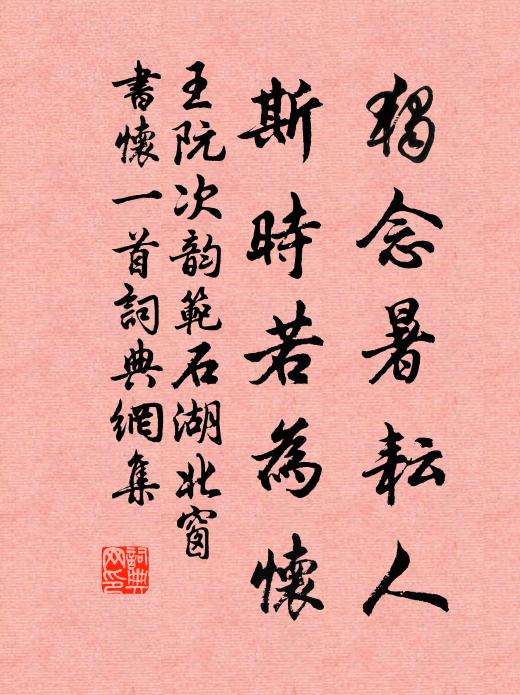 獨念暑耘人
斯時若為懷
王阮次韵範石湖北窗
書懷一首詞典網集
詞典网印